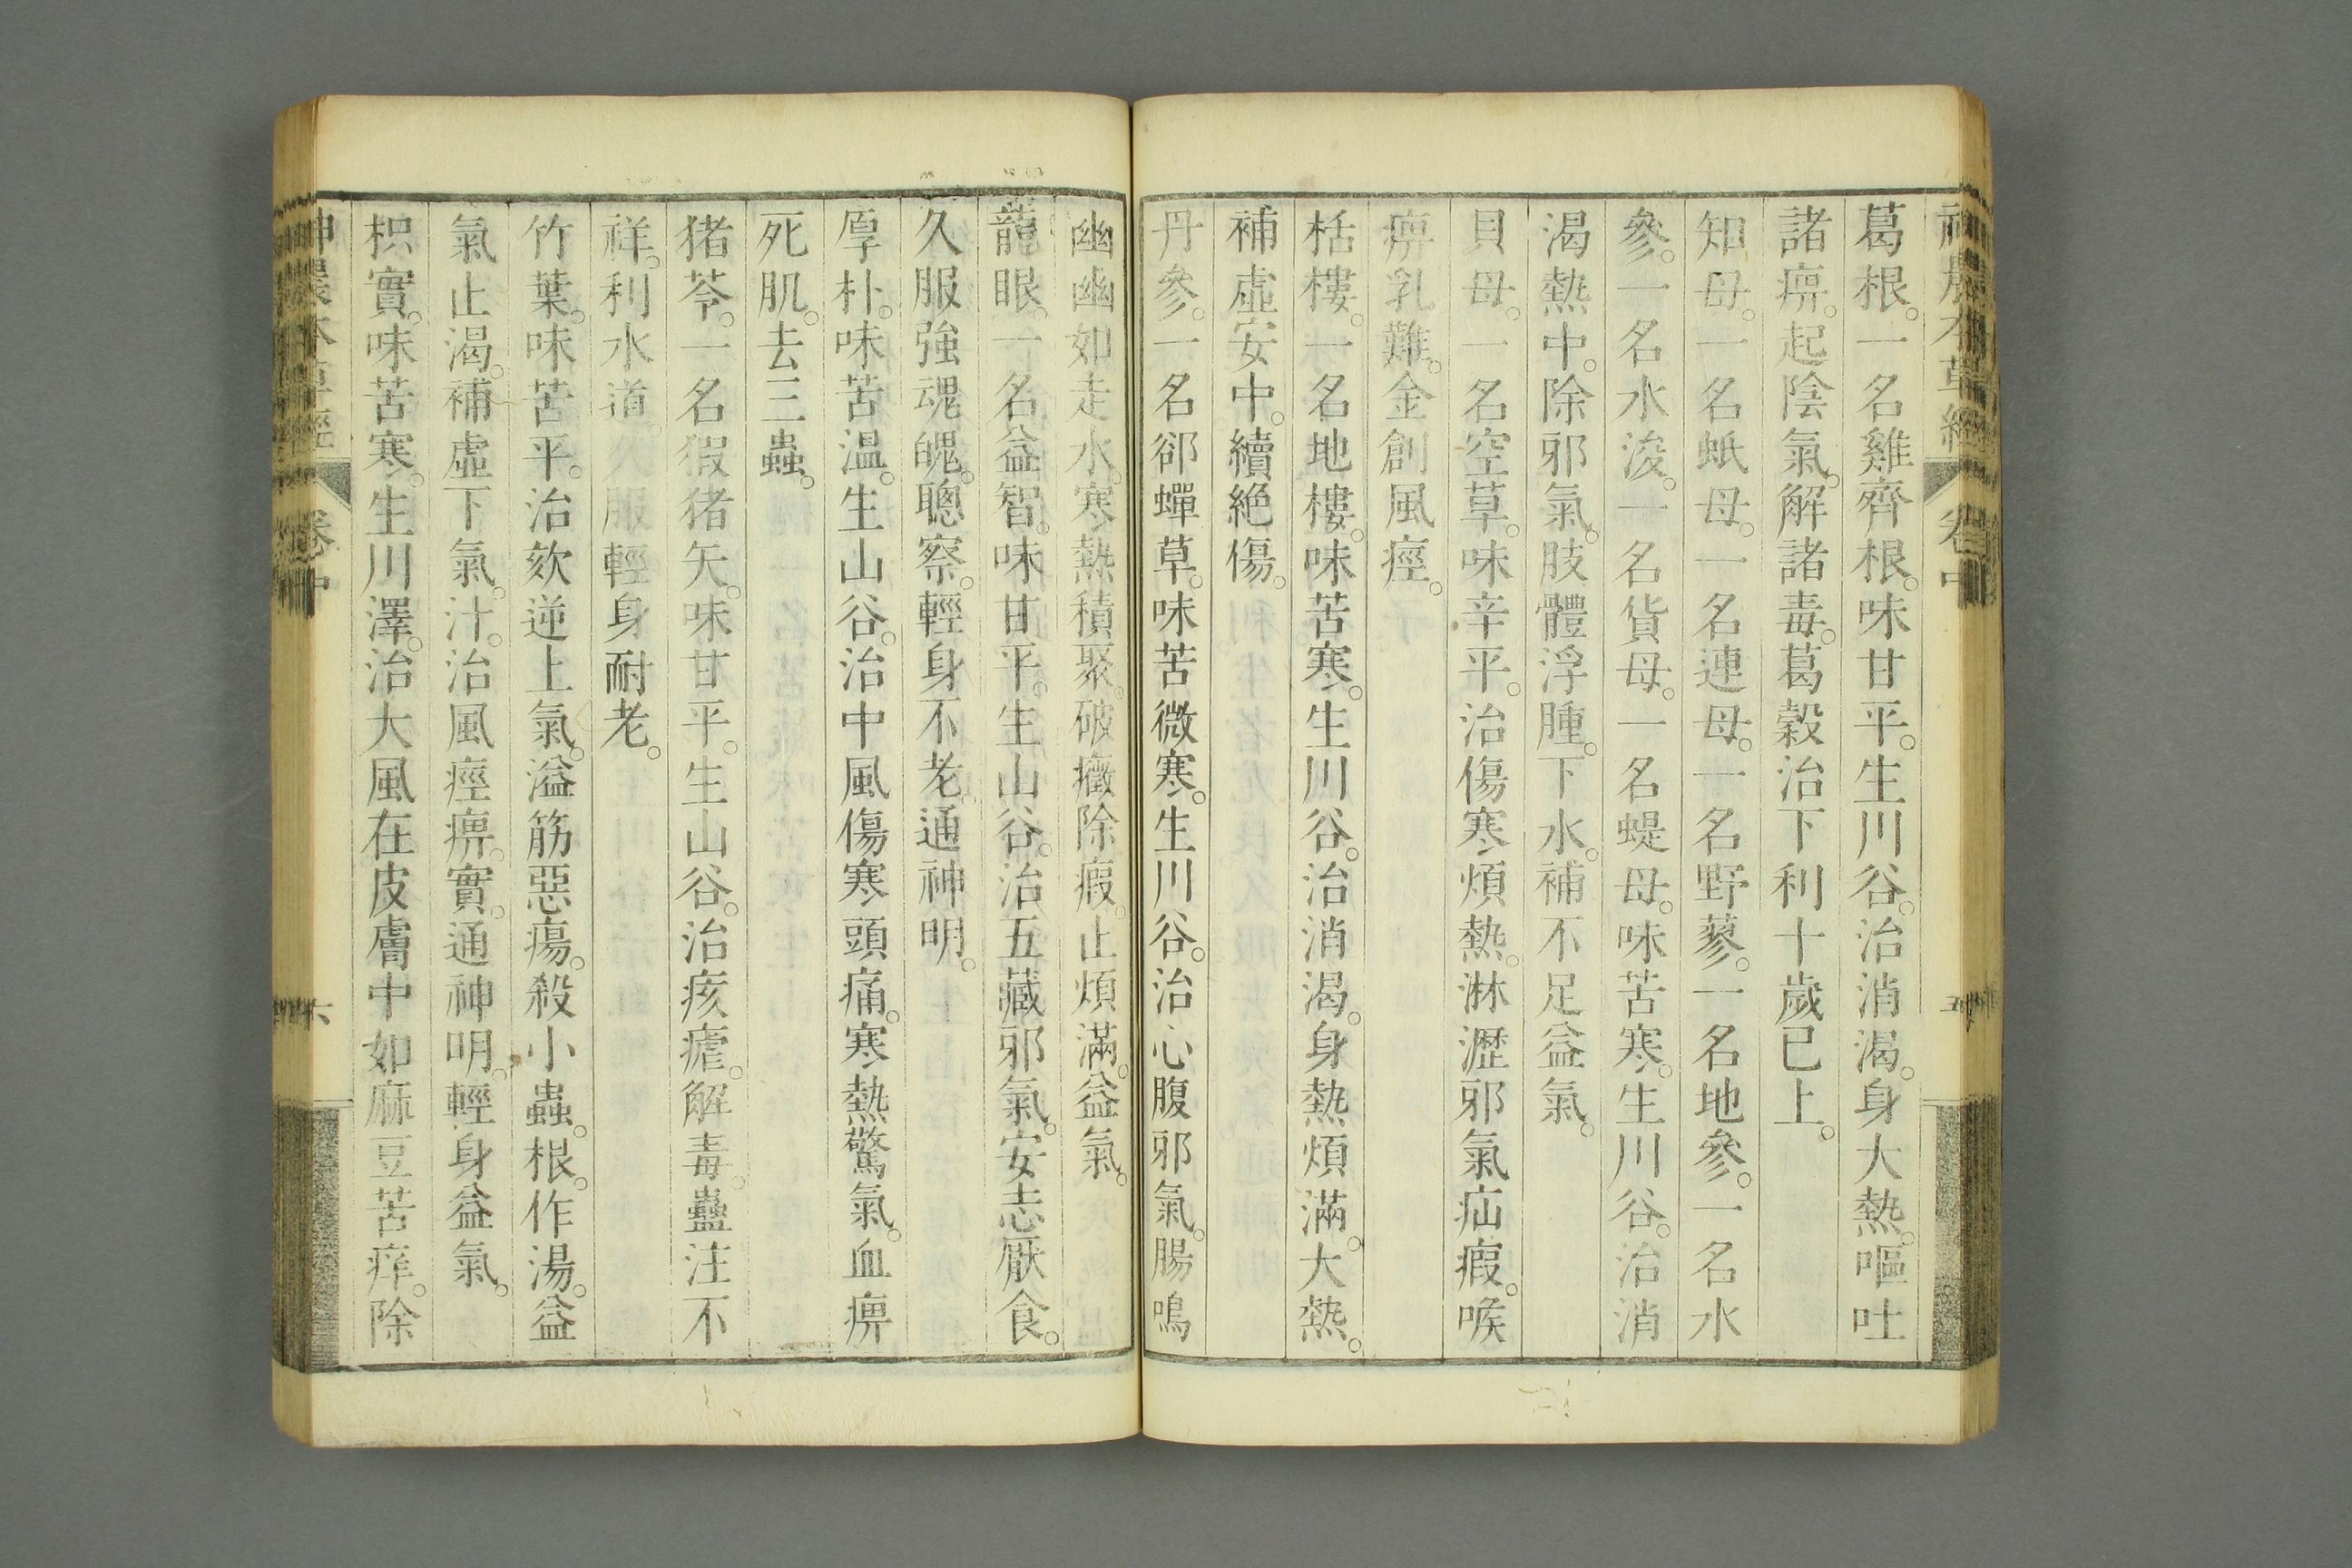 神農本草經 卷中 五
葛根。一名雞齊根。味甘平。生川谷。治消渴。身大熱。嘔吐
諸痹。起陰氣。解諸毒。葛穀治下利十歲已上。
知母。一名蚔母。一名連母。一名野蓼。一名地參。一名水
參。一名水浚。一名貨母。一名蝭母。味苦寒。生川谷。治消
渴熱中。除邪氣。肢體浮腫。下水。補不足益氣。
貝母。一名空草。味辛平。治傷寒煩熱。淋瀝邪氣疝瘕。喉
痹乳難。金創風痙。
栝樓。一名地樓。味苦寒。生川谷。治消渴。身熱煩滿。大熱。
補虛安中。續絶傷。
丹參。一名郤蟬草。味苦微寒。生川谷。治心腹邪氣。腸鳴
幽幽如走水。寒熱積聚。破癥除瘕。止煩滿。益氣。
龍眼。一名益智。味甘平。生山谷。治五藏邪氣。安志厭食。
久服強魂魄。聰察。輕身不老。通神明。
厚朴。味苦溫。生山谷。治中風傷寒頭痛。寒熱驚氣。血痹
死肌。去三蟲。
猪苓。一名猳猪矢。味甘平。生山谷。治痎瘧。解毒。蠱注不
祥。利水道。久服輕身耐老。
竹葉。味苦平。治欬逆上氣。溢筋惡瘍。殺小蟲。根。作湯。益
氣止渴。補虛下氣。汁。治風痙痹。實。通神明。輕身益氣。
枳實。味苦寒。生川澤。治大風在皮膚中如麻豆苦痒。除
神農本草經 卷中 六